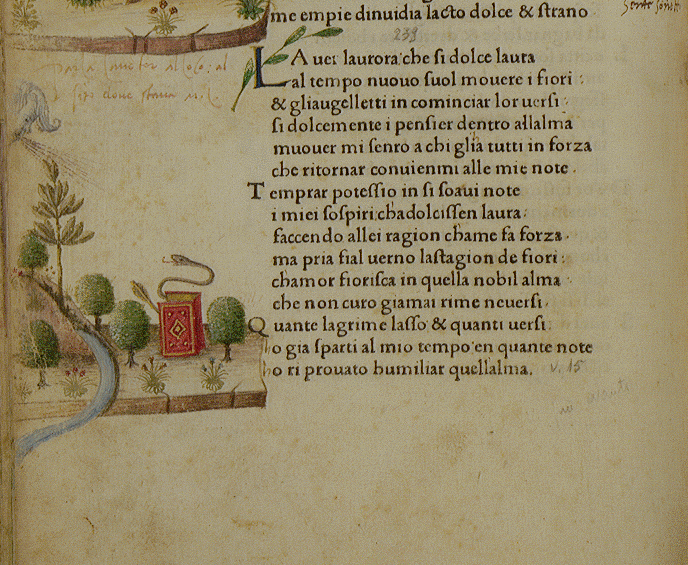 me empie dinuidia lacto dolce & strano
239
LA uer laurora che si dolce laura
al tempo nuouo suol mouere i fiori:
& gliaugelletti in cominciar lor uersi:
si dolcemente i pensier dentro allalma
muouer mi sento a chi gliа tutti in forza
che ritornar conuienmi alle mie note.
Temprar potessio in si soaui note
i miei sospiri chadolcissen laura:
faccendo allei ragion chame fa forza.
ma pria fial uerno lastagion de fiori:
chamor fiorisca in quella nobil alma
che non curo giamai rime neuersi.
Quante lagrime lasso & quanti uersi:
ho gia sparti al mio tempo en quante note
ho ri prouato humiliar quellalma. v. 15